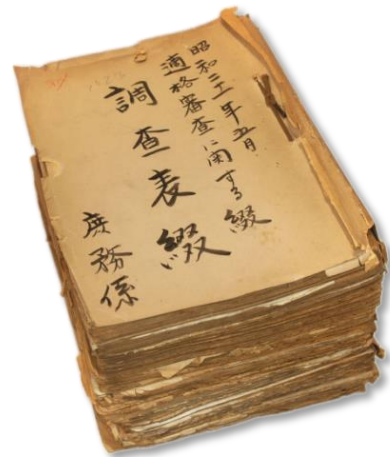 昭和二十一年五月
適格審査に関する綴
調査表綴
庶務係